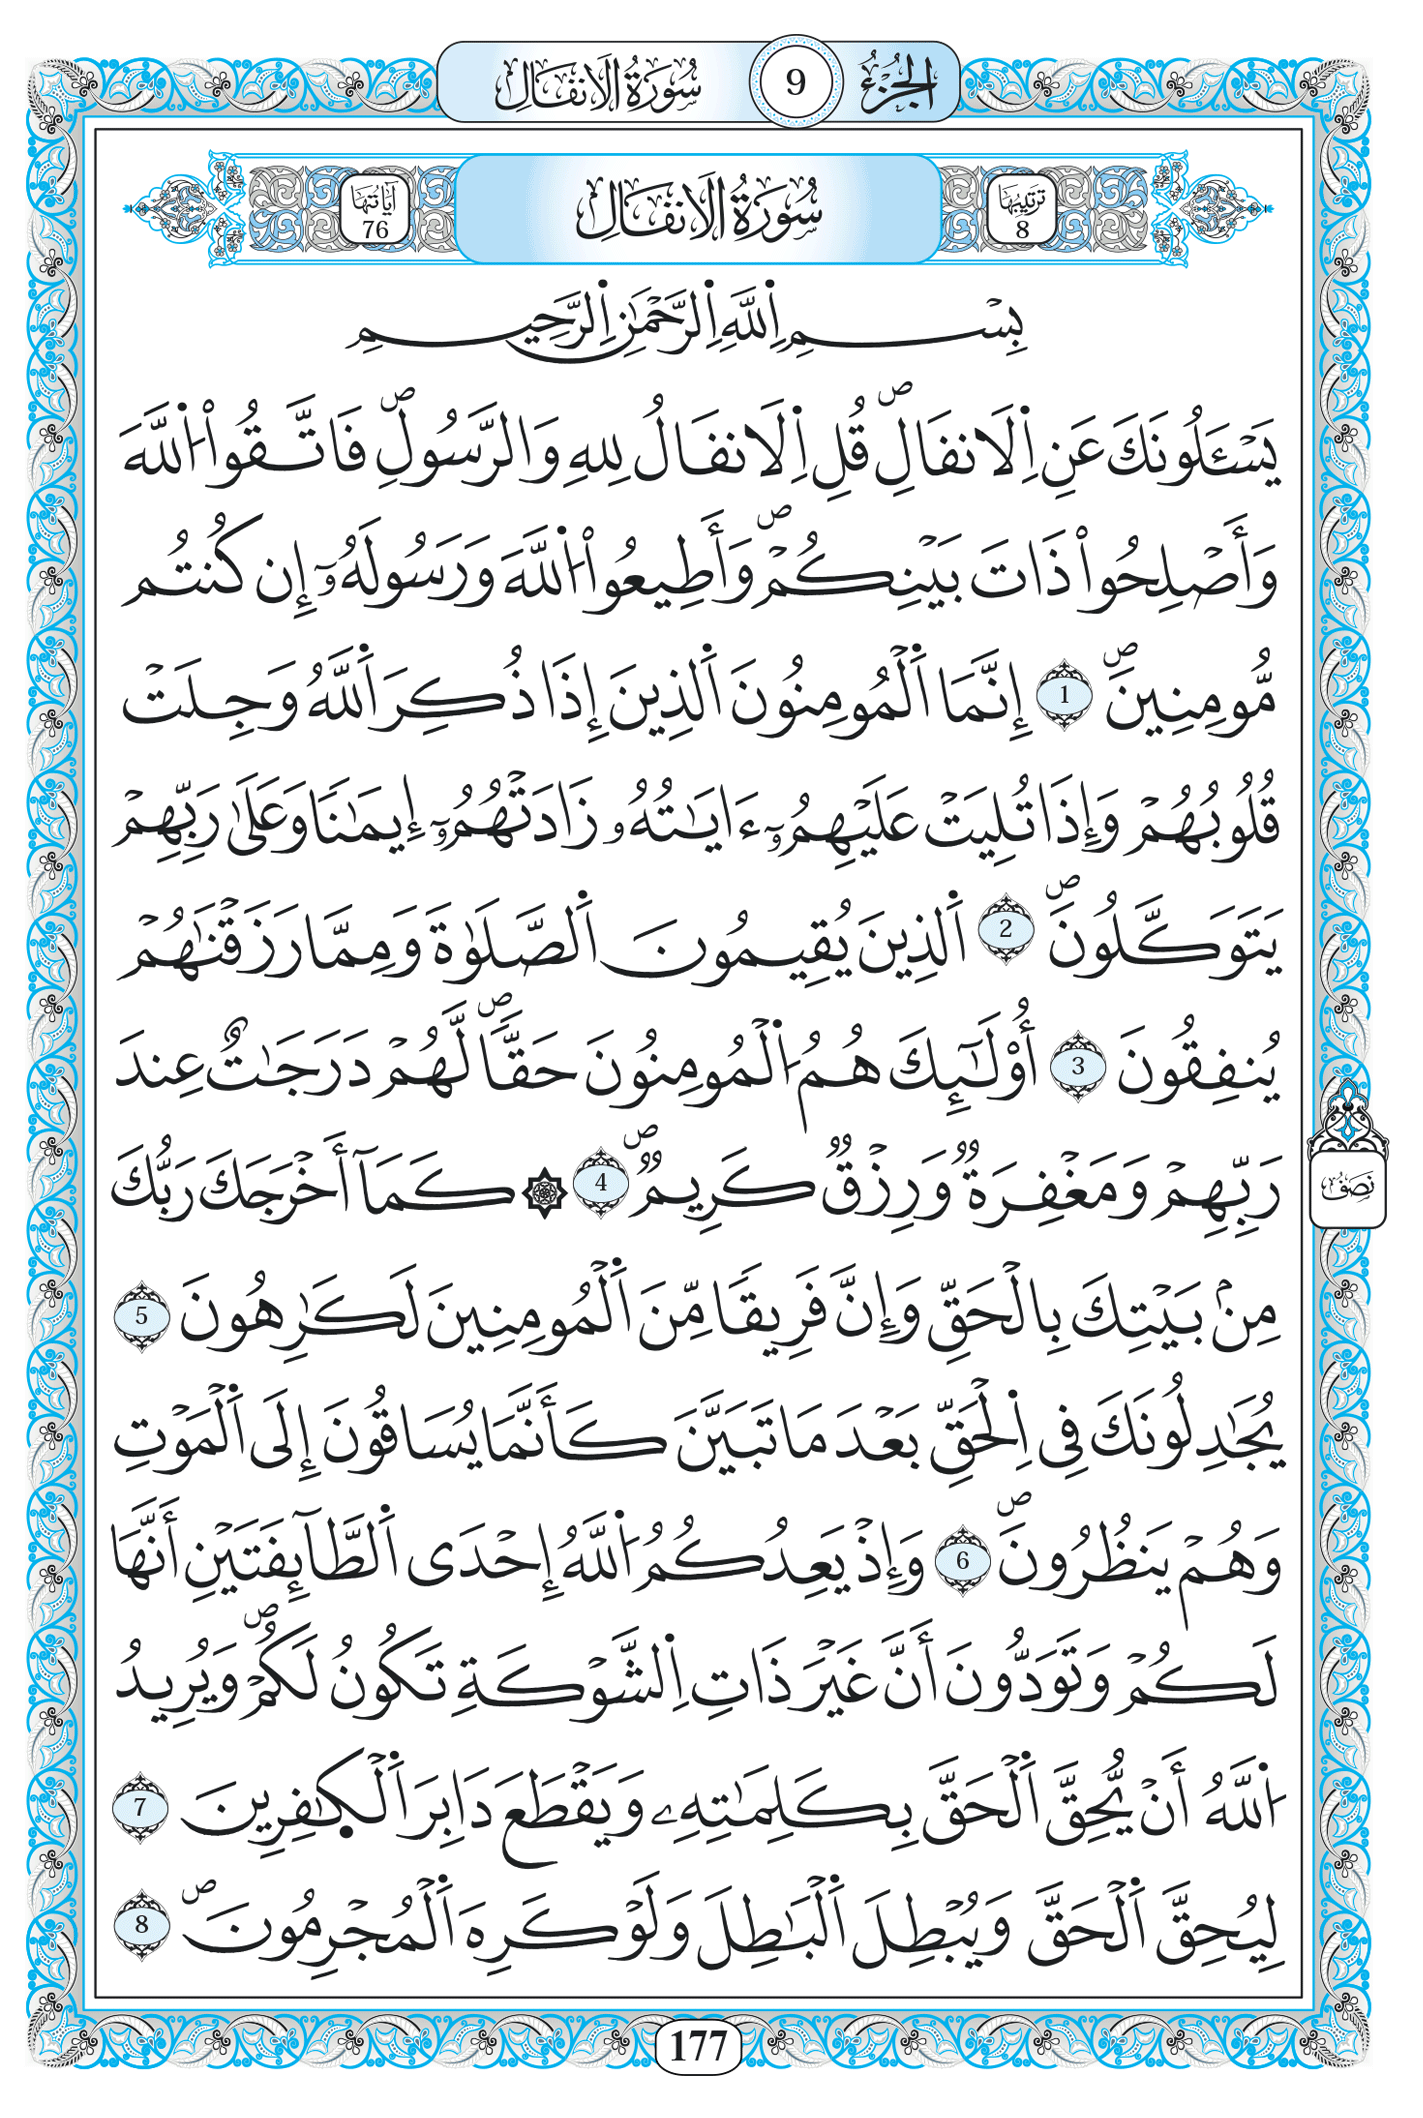 الجزء 9 سورة الانفال
ترتيبها 8 سورة الانفال آياتها 76
بِسْمِ اِ۬للَّهِ اِ۬لرَّحْمَٰنِ اِ۬لرَّحِيمِ
يَسْـَٔلُونَكَ عَنِ اِ۬لَانفَالِۖ قُلِ اِ۬لَانفَالُ لِلهِ وَالرَّسُولِۖ فَاتَّقُواْ اُ۬للَّهَ
وَأَصْلِحُواْ ذَاتَ بَيْنِكُمْۖ وَأَطِيعُواْ اُ۬للَّهَ وَرَسُولَهُۥٓ إِن كُنتُم
مُّومِنِينَۖ 1 إِنَّمَا اَ۬لْمُومِنُونَ اَ۬لذِينَ إِذَا ذُكِرَ اَ۬للَّهُ وَجِلَتْ
قُلُوبُهُمْ وَإِذَا تُلِيَتْ عَلَيْهِمُۥٓ ءَايَٰتُهُۥ زَادَتْهُمُۥٓ إِيمَٰنَا وَعَلَىٰ رَبِّهِمْ
يَتَوَكَّلُونَۖ 2 اَ۬لذِينَ يُقِيمُونَ اَ۬لصَّلَوٰةَ وَمِمَّا رَزَقْنَٰهُمْ
يُنفِقُونَ 3 أُوْلَٰٓئِكَ هُمُ اُ۬لْمُومِنُونَ حَقّاٗۖ لَّهُمْ دَرَجَٰتٌ عِندَ
رَبِّهِمْ وَمَغْفِرَةٞ وَرِزْقٞ كَرِيمٞۖ 4 ۞ كَمَآ أَخْرَجَكَ رَبُّكَ
مِنۢ بَيْتِكَ بِالْحَقِّ وَإِنَّ فَرِيقَا مِّنَ اَ۬لْمُومِنِينَ لَكَٰرِهُونَ 5
يُجَٰدِلُونَكَ فِى اِ۬لْحَقِّ بَعْدَ مَا تَبَيَّنَ كَأَنَّمَا يُسَاقُونَ إِلَى اَ۬لْمَوْتِ
وَهُمْ يَنظُرُونَۖ 6 وَإِذْ يَعِدُكُمُ اُ۬للَّهُ إِحْدَى اَ۬لطَّآئِفَتَيْنِ أَنَّهَا
لَكُمْ وَتَوَدُّونَ أَنَّ غَيْرَ ذَاتِ اِ۬لشَّوْكَةِ تَكُونُ لَكُمْۖ وَيُرِيدُ
اُ۬للَّهُ أَنْ يُّحِقَّ اَ۬لْحَقَّ بِكَلِمَٰتِهِۦ وَيَقْطَعَ دَابِرَ اَ۬لْكٰفِرِينَ 7
لِيُحِقَّ اَ۬لْحَقَّ وَيُبْطِلَ اَ۬لْبَٰطِلَ وَلَوْ كَرِهَ اَ۬لْمُجْرِمُونَۖ 8
نصف
177